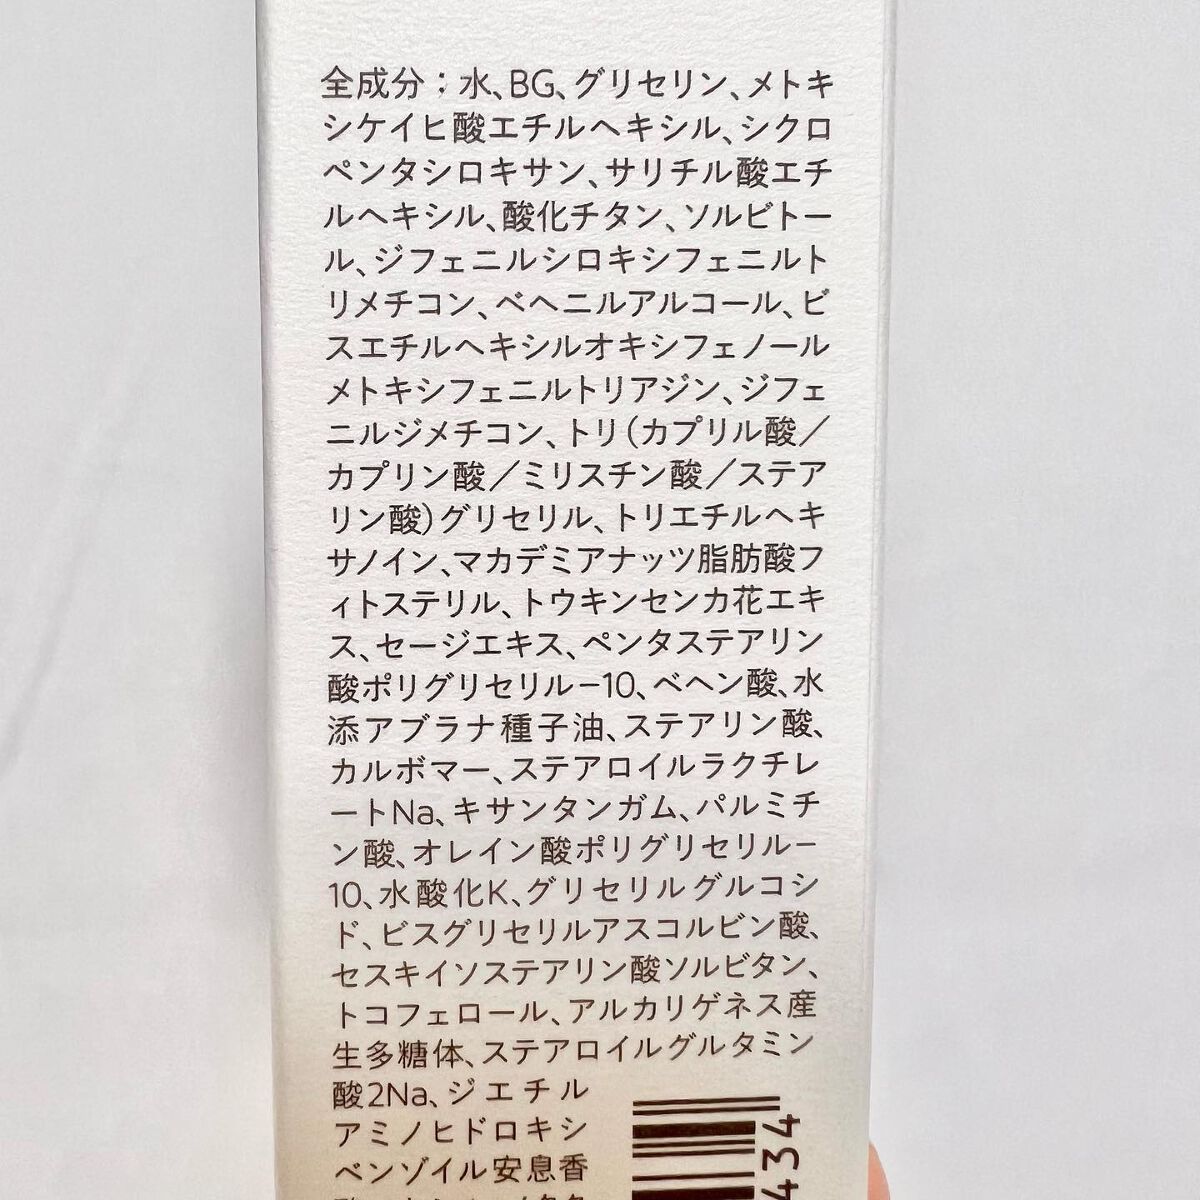 全成分：水、BG、グリセリン、メトキ
シケイヒ酸エチルヘキシル、シクロ
ペンタシロキサン、サリチル酸エチ
ルヘキシル、酸化チタン、ソルビトー
ル、ジフェニルシロキシフェニルト
リメチコン、ベヘニルアルコール、ビ
スエチルヘキシルオキシフェノール
メトキシフェニルトリアジン、ジフェ
ニルジメチコン、トリ(カプリル酸／
カプリン酸／ミリスチン酸／ステア
リン酸)グリセリル、トリエチルヘキ
サノイン、マカデミアナッツ脂肪酸フ
ィトステリル、トウキンセンカ花エキ
ス、セージエキス、ペンタステアリン
酸ポリグリセリル－10、ベヘン酸、水
添アブラナ種子油、ステアリン酸、
カルボマー、ステアロイルラクチレ
ートNa、キサンタンガム、パルミチ
ン酸、オレイン酸ポリグリセリル－
10、水酸化K、グリセリルグルコシ
ド、ビスグリセリルアスコルビン酸、
セスキイソステアリン酸ソルビタン、
トコフェロール、アルカリゲネス産
生多糖体、ステアロイルグルタミン
酸2Na、ジエチル
アミノヒドロキシ
ベンゾイル安息香
434